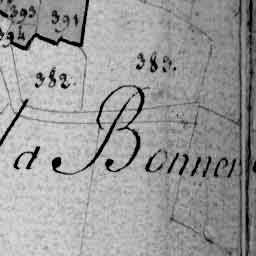 393 391
394
382. 383.
la Bonner